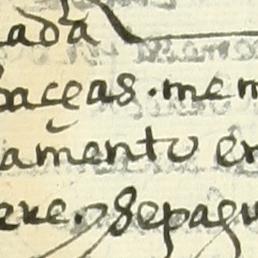 ada
baçeas . mem
amento en
ere. Se pagu